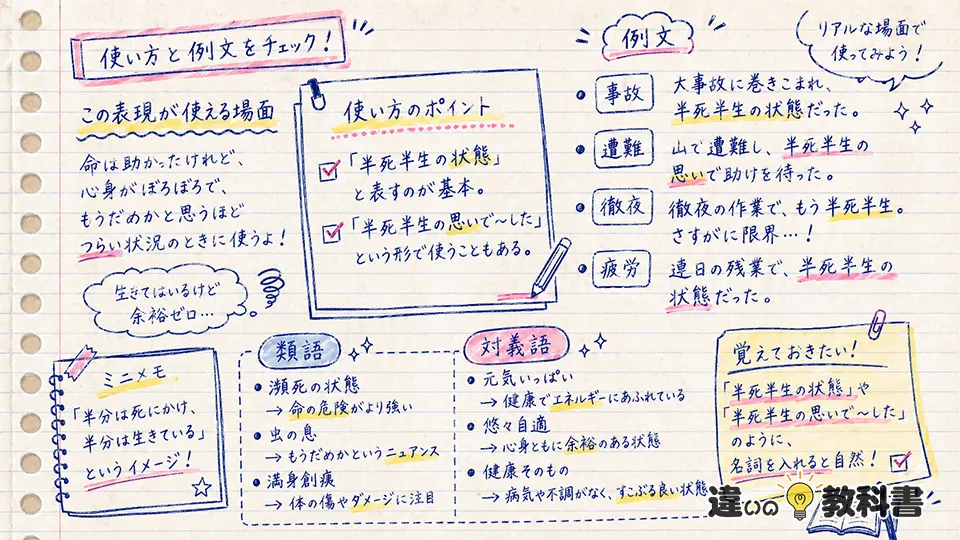 使い方と例文をチェック！
この表現が使える場面
命は助かったけれど、
心身がぼろぼろで、
もうだめかと思うほど
つらい状況のときに使うよ！
生きてはいるけど
余裕ゼロ…
使い方のポイント
「半死半生の状態」
と表すのが基本。
「半死半生の思いで〜した」
という形で使うこともある。
例文
リアルな場面で
使ってみよう！
事故
大事故に巻きこまれ、
半死半生の状態だった。
遭難
山で遭難し、半死半生の
思いで助けを待った。
徹夜
徹夜の作業で、もう半死半生。
さすがに限界…！
疲労
連日の残業で、半死半生の
状態だった。
ミニメモ
「半分は死にかけ、
半分は生きている」
というイメージ！
類語
・瀕死の状態
→命の危険がより強い
・虫の息
→もうだめかというニュアンス
・満身創痍
→体の傷やダメージに注目
対義語
・元気いっぱい
→健康でエネルギーにあふれている
・悠々自適
→心身ともに余裕のある状態
・健康そのもの
→病気や不調がなく、すこぶる良い状態
覚えておきたい！
「半死半生の状態」や
「半死半生の思いで〜した」
のように、
名詞を入れると自然！
違いの教科書